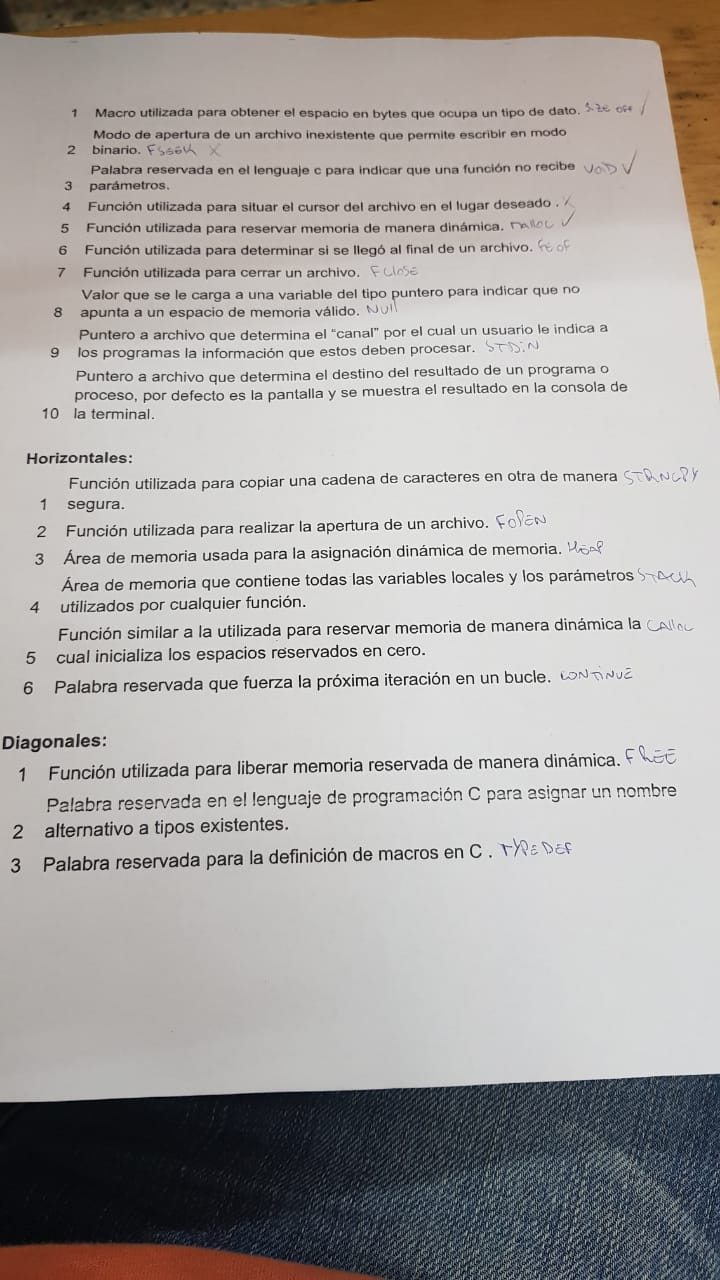 1 Macro utilizada para obtener el espacio en bytes que ocupa un tipo de dato. SizE OFF /
Modo de apertura de un archivo inexistente que permite escribir en modo
2 binario. FSEEK X
Palabra reservada en el lenguaje c para indicar que una función no recibe VOiD √
3 parámetros.
4 Función utilizada para situar el cursor del archivo en el lugar deseado . X
5 Función utilizada para reservar memoria de manera dinámica. malloc √
6 Función utilizada para determinar si se llegó al final de un archivo. fEOF
7 Función utilizada para cerrar un archivo. FClOSE
Valor que se le carga a una variable del tipo puntero para indicar que no
8 apunta a un espacio de memoria válido. NUll
Puntero a archivo que determina el "canal" por el cual un usuario le indica a
9 los programas la información que estos deben procesar. STDiN
Puntero a archivo que determina el destino del resultado de un programa o
proceso, por defecto es la pantalla y se muestra el resultado en la consola de
10 la terminal.
Horizontales:
Función utilizada para copiar una cadena de caracteres en otra de manera STRNCPY
1 segura.
2 Función utilizada para realizar la apertura de un archivo. FOPEN
3 Área de memoria usada para la asignación dinámica de memoria. HEAP
Área de memoria que contiene todas las variables locales y los parámetros STACK
4 utilizados por cualquier función.
Función similar a la utilizada para reservar memoria de manera dinámica la CAlloc
5 cual inicializa los espacios reservados en cero.
6 Palabra reservada que fuerza la próxima iteración en un bucle. CONTINUE
Diagonales:
1 Función utilizada para liberar memoria reservada de manera dinámica. FREE
Palabra reservada en el lenguaje de programación C para asignar un nombre
2 alternativo a tipos existentes.
3 Palabra reservada para la definición de macros en C . TYPEDEF